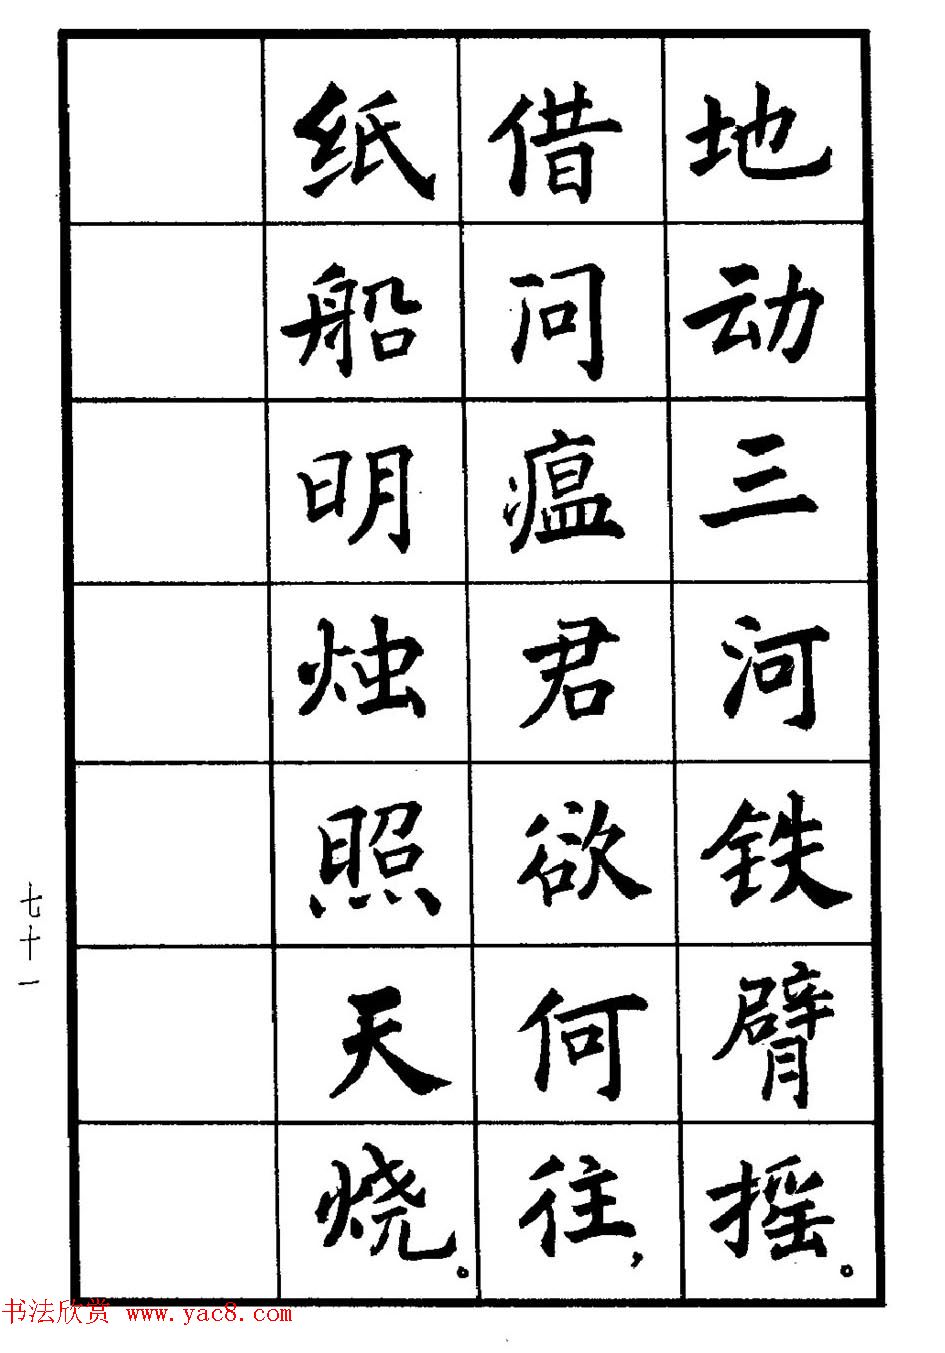 地动三河铁臂摇。
借问瘟君欲何往，
纸船明烛照天烧。
七十一
书法欣赏 www.yac8.com